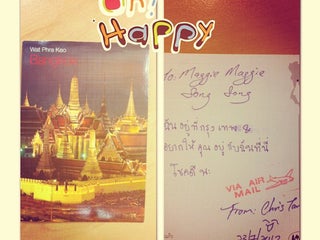 Oh!
Happy
Wat Phra Keo
Bangkok
To. Maggie Maggie
Dong Dong
ฉัน อยู่ ที่ กรุง เทพฯ
อยากให้ คุณ อยู่ กับฉันที่นี่
โชคดี นะ
VIA AIR
MAIL
From: Chris